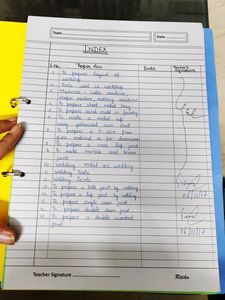 Topic
Date
INDEX
S.No. Topic Aim Date Teacher's Signature
1. To prepare layout of workshop
2. Tools used in workshop
3. Machines - Lathe machine, shaper machine, milling machine
4. To prepare sheet metal tray
5. To prepare sand mold in foundry
6. To make a metal cup using
7. To prepare a T-slot from given material as per dimensions
8. To prepare a cross lap joint
9. To make mortise and tenon joint
10. Welding - Metal arc welding
11. Welding Tools
12. Welding Joints
13. To prepare a butt joint by welding
14. To prepare a lap joint by welding
15. To prepare single cover joint
16. To prepare double cover joint
17. To prepare a double riveted joint
06/11/17
06/11/17
Teacher Signature
Ritisha